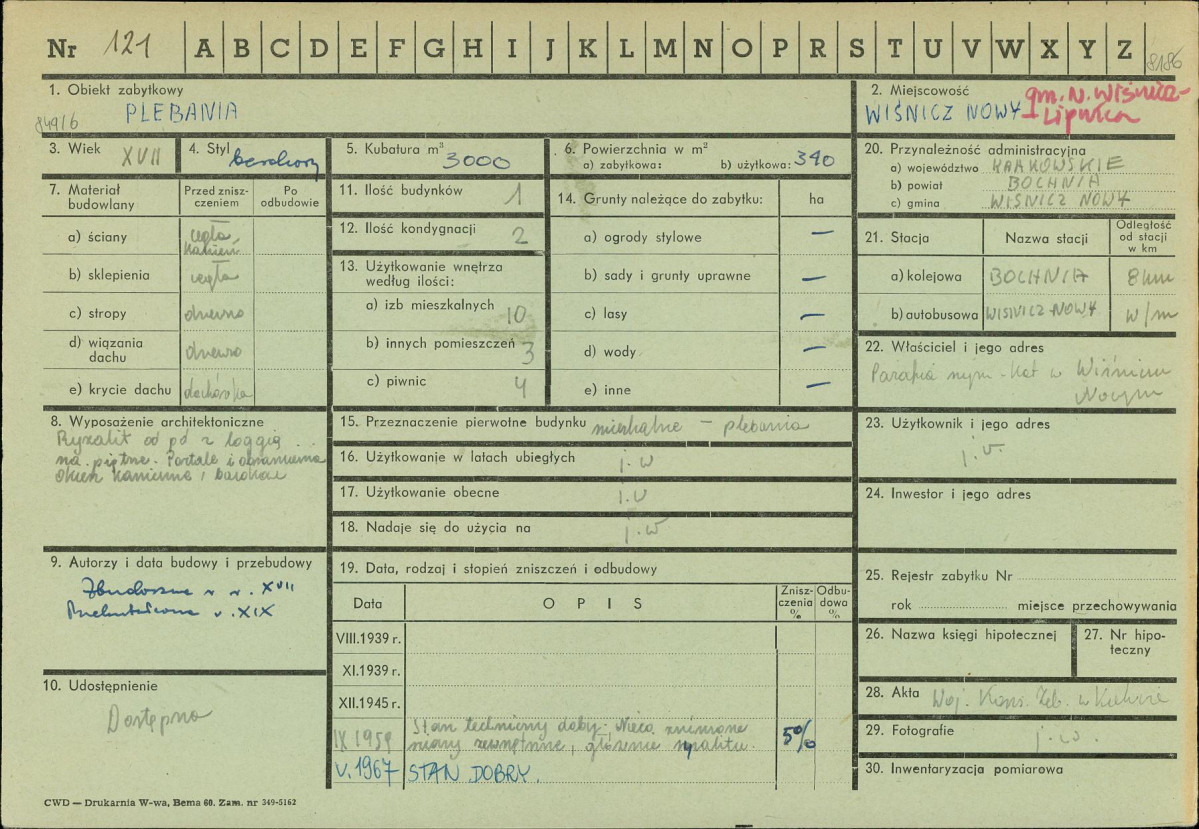 Nr 121 A B C D E F G H I J K L M N O P R S T U V W X Y Z 8186
1. Obiekt zabytkowy
PLEBANIA
849/6
2. Miejscowość
WIŚNICZ NOWY
gm. N. Wiśnicz-
Lipnica
3. Wiek XVII
4. Styl barokowy
5. Kubatura m³ 3000
6. Powierzchnia w m²
a) zabytkowa: b) użytkowa: 340
20. Przynależność administracyjna
a) województwo KRAKOWSKIE
b) powiat BOCHNIA
c) gmina WISNICZ NOWY
7. Materiał budowlany
Przed zniszczeniem
Po odbudowie
a) ściany cegła, kamień
b) sklepienia cegła
c) stropy drewno
d) wiązania dachu drewno
e) krycie dachu dachówka
11. Ilość budynków 1
12. Ilość kondygnacji 2
13. Użytkowanie wnętrza
według ilości:
a) izb mieszkalnych 10
b) innych pomieszczeń 3
c) piwnic 4
14. Grunty należące do zabytku: ha
a) ogrody stylowe —
b) sady i grunty uprawne —
c) lasy —
d) wody —
e) inne —
21. Stacja Nazwa stacji Odległość od stacji w km
a) kolejowa BOCHNIA 8 km
b) autobusowa WISNICZ-NOWY w/m
22. Właściciel i jego adres
Parafia rzym.-kat w Wiśniczu
Nowym
8. Wyposażenie architektoniczne
Ryzalit od pd z loggią
na piętrze. Portale i obramienia
okien kamienne, barokowe
15. Przeznaczenie pierwotne budynku mieszkalne — plebania
16. Użytkowanie w latach ubiegłych j.w
17. Użytkowanie obecne j.w
18. Nadaje się do użycia na j.w
23. Użytkownik i jego adres
j.w.
24. Inwestor i jego adres
9. Autorzy i data budowy i przebudowy
Zbudowana w w. XVII
Przekształcona w. XIX
19. Data, rodzaj i stopień zniszczeń i odbudowy
Data OPIS Zniszczenia % Odbudowa %
VIII.1939 r.
XI.1939 r.
XII.1945 r.
IX 1959 Stan techniczny dobry; Nieco
zewnętrzne, ryzalitu. 5%
V.1967 STAN DOBRY.
25. Rejestr zabytku Nr
rok miejsce przechowywania
26. Nazwa księgi hipotecznej
27. Nr hipoteczny
10. Udostępnienie
Dostępna
28. Akta Woj. Kons. Zab. w Krakowie
29. Fotografie j.w.
30. Inwentaryzacja pomiarowa
CWD — Drukarnia W-wa, Bema 60. Zam. nr 349-5162